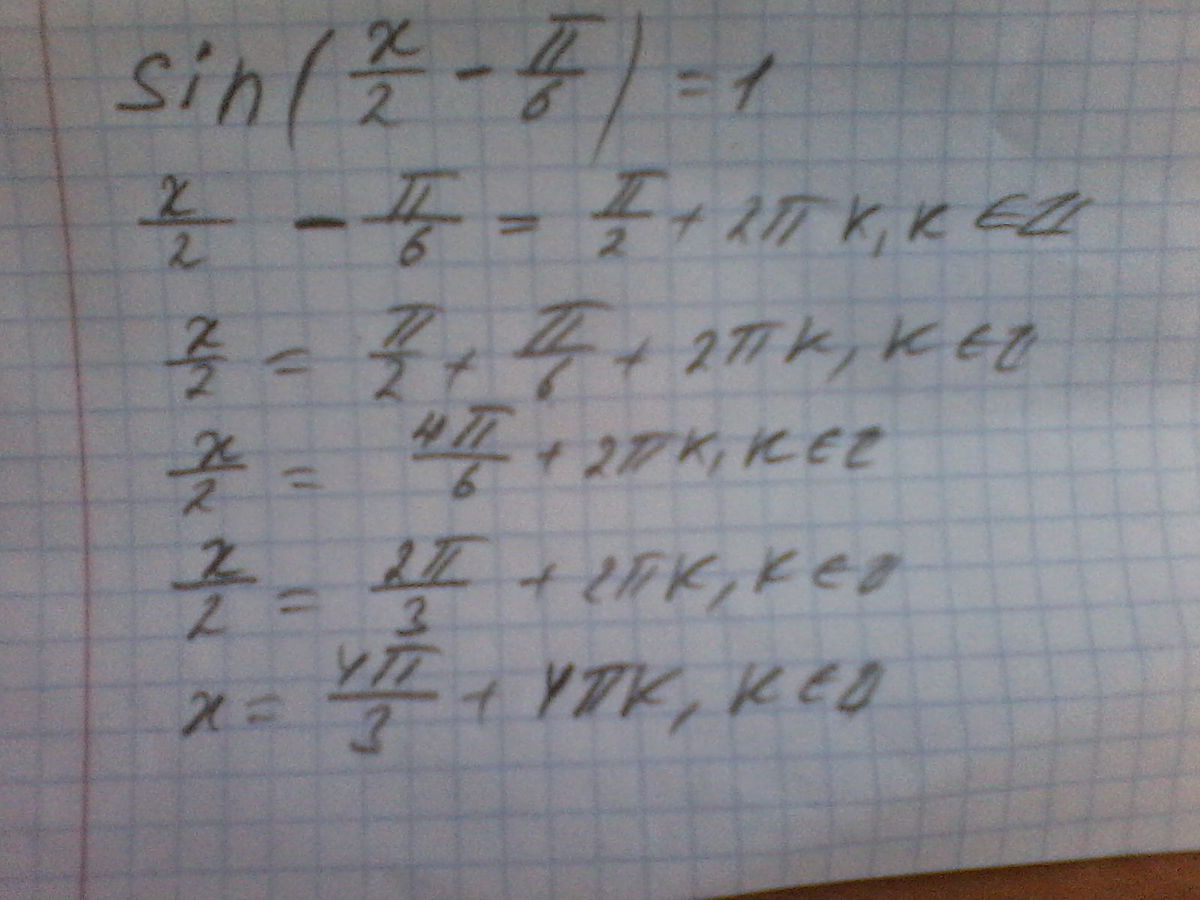 sin(x/2 - π/6) = 1
x/2 - π/6 = π/2 + 2πк, к ∈ Z
x/2 = π/2 + π/6 + 2πк, к ∈ Z
x/2 = 4π/6 + 2πк, к ∈ Z
x/2 = 2π/3 + 2πк, к ∈ Z
x = 4π/3 + 4πк, к ∈ Z